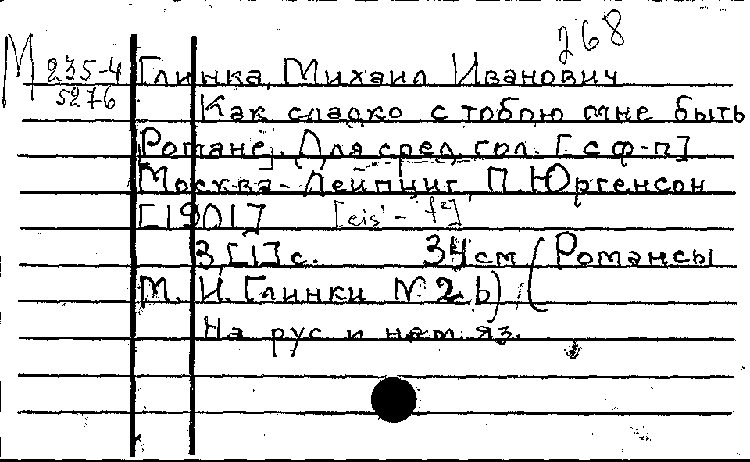 268
М 235-4
5276
Глинка, Михаил Иванович
Как сладко с тобою мне быть
Романс. Для сред. гол. [с ф-п]
Москва - Лейпциг, П. Юргенсон
[1901] [cis' - f²]
3 [1] с. 34 см (Романсы
М. И. Глинки № 2 b)
На рус и нем яз.